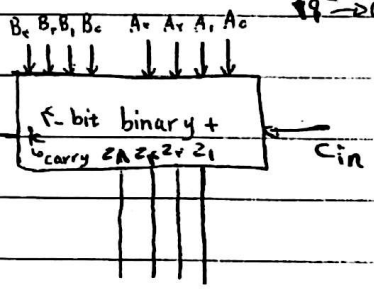 B۳ B۲ B۱ B۰ A۳ A۲ A۱ A۰
۴-bit binary +
carry Z۸ Z۴ Z۲ Z۱
Cin